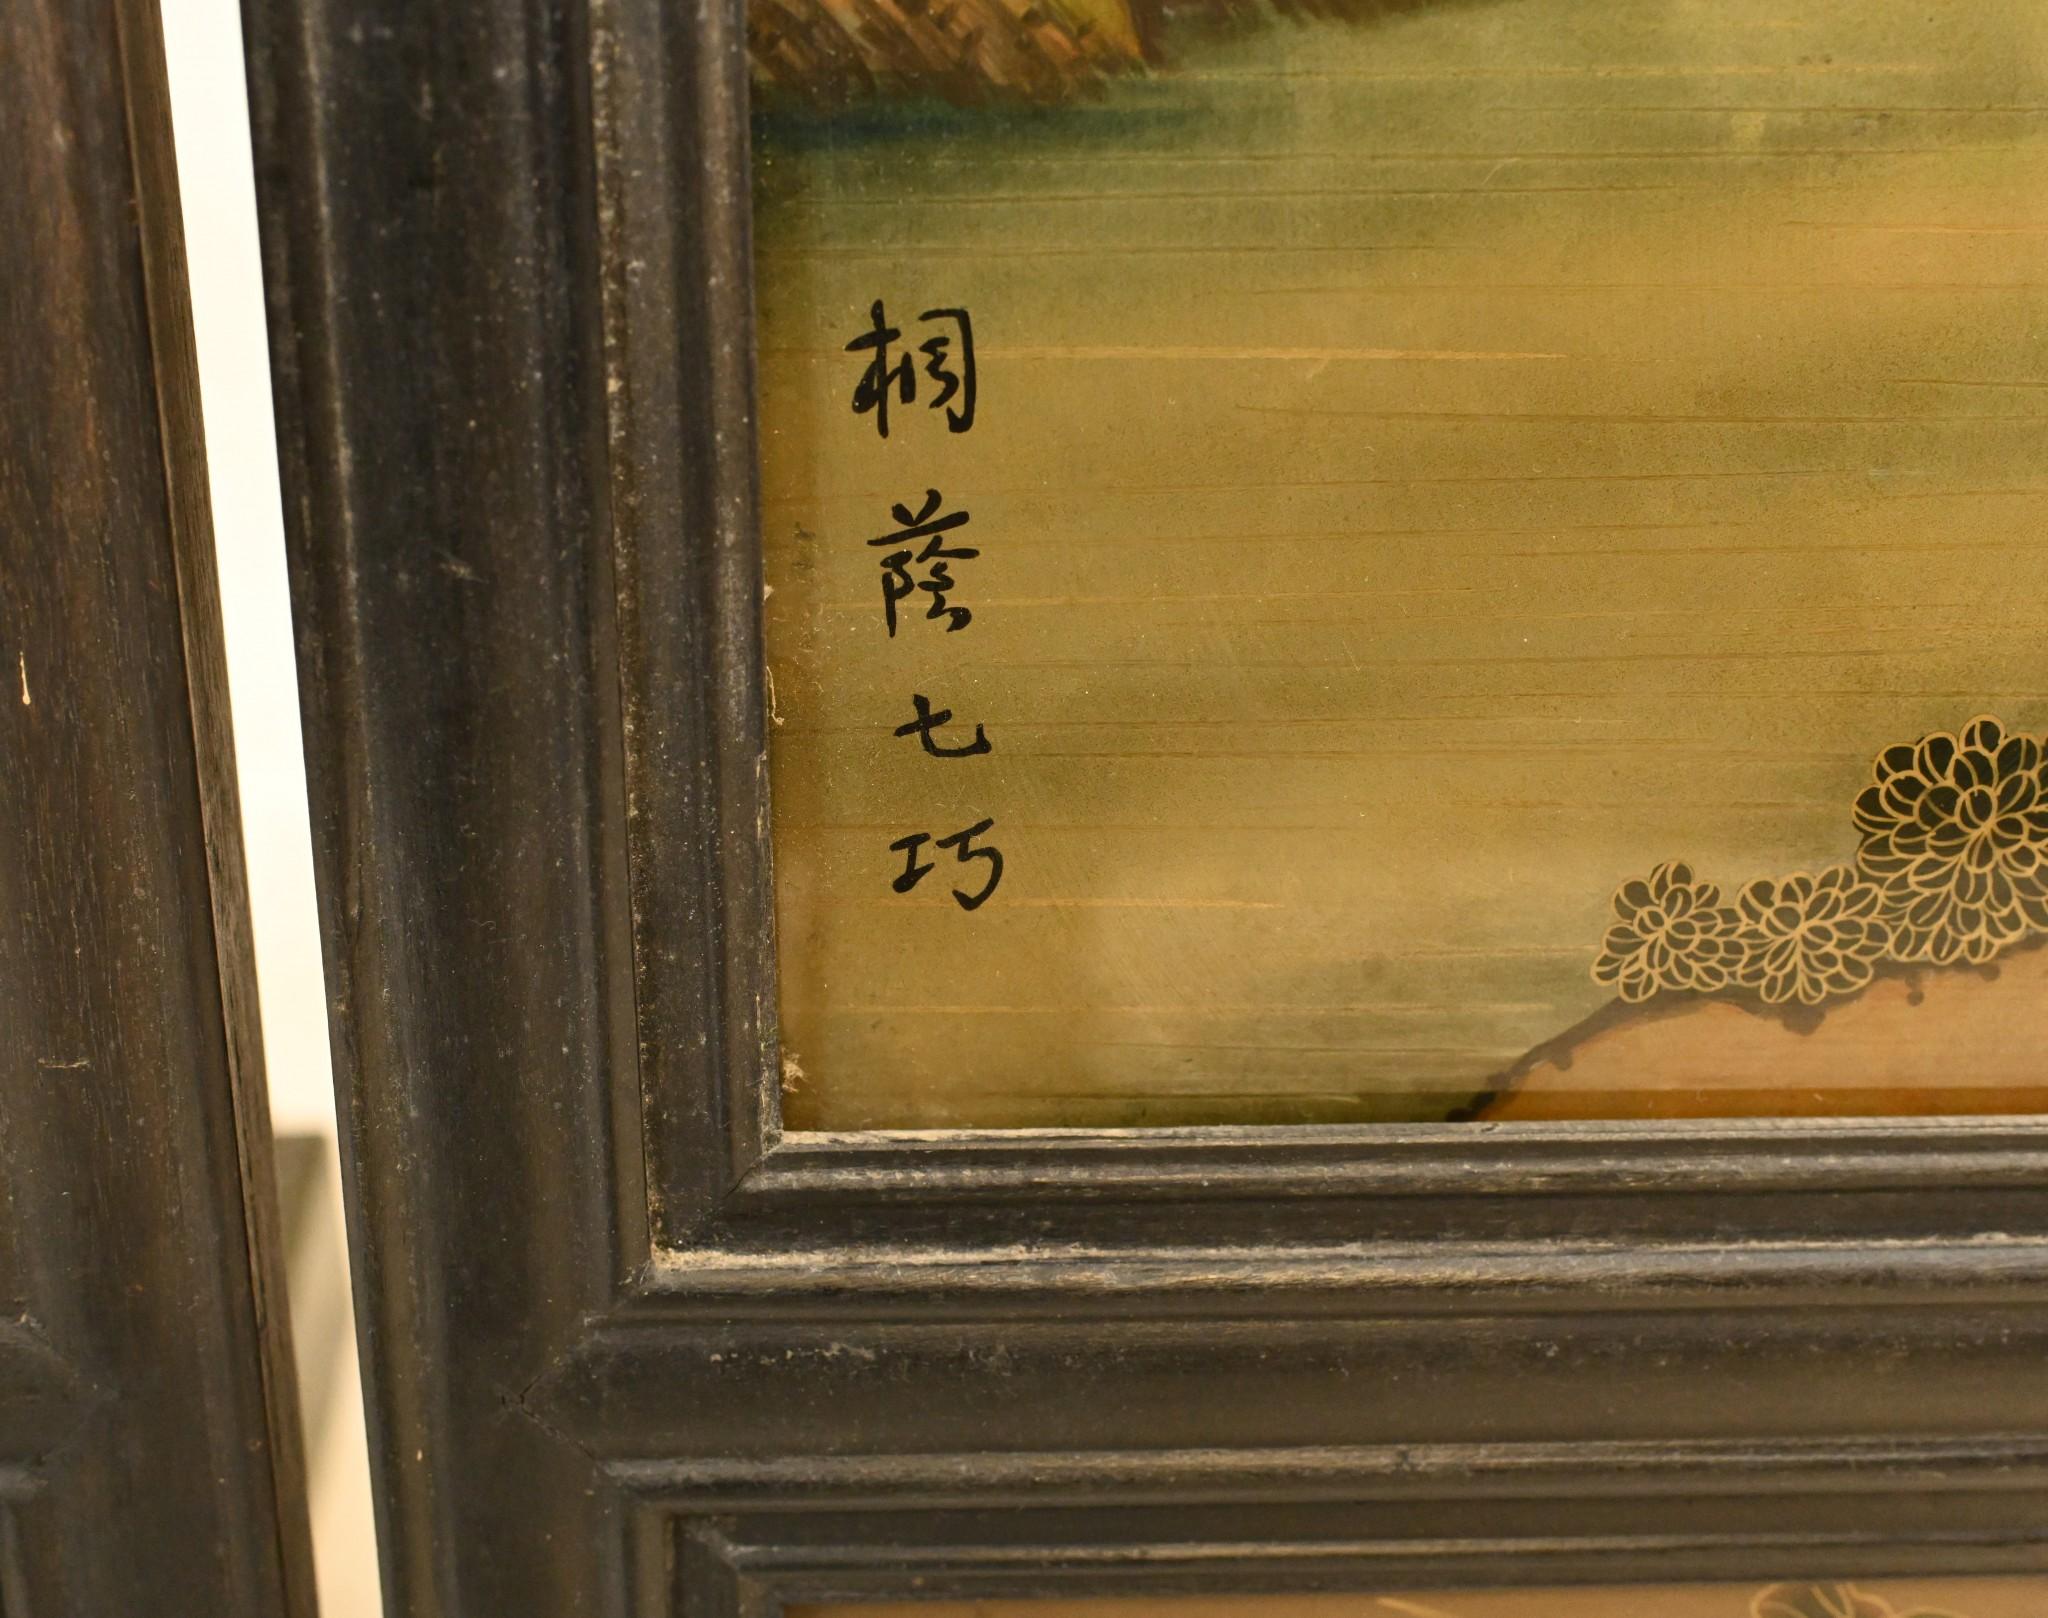 桐蔭七巧